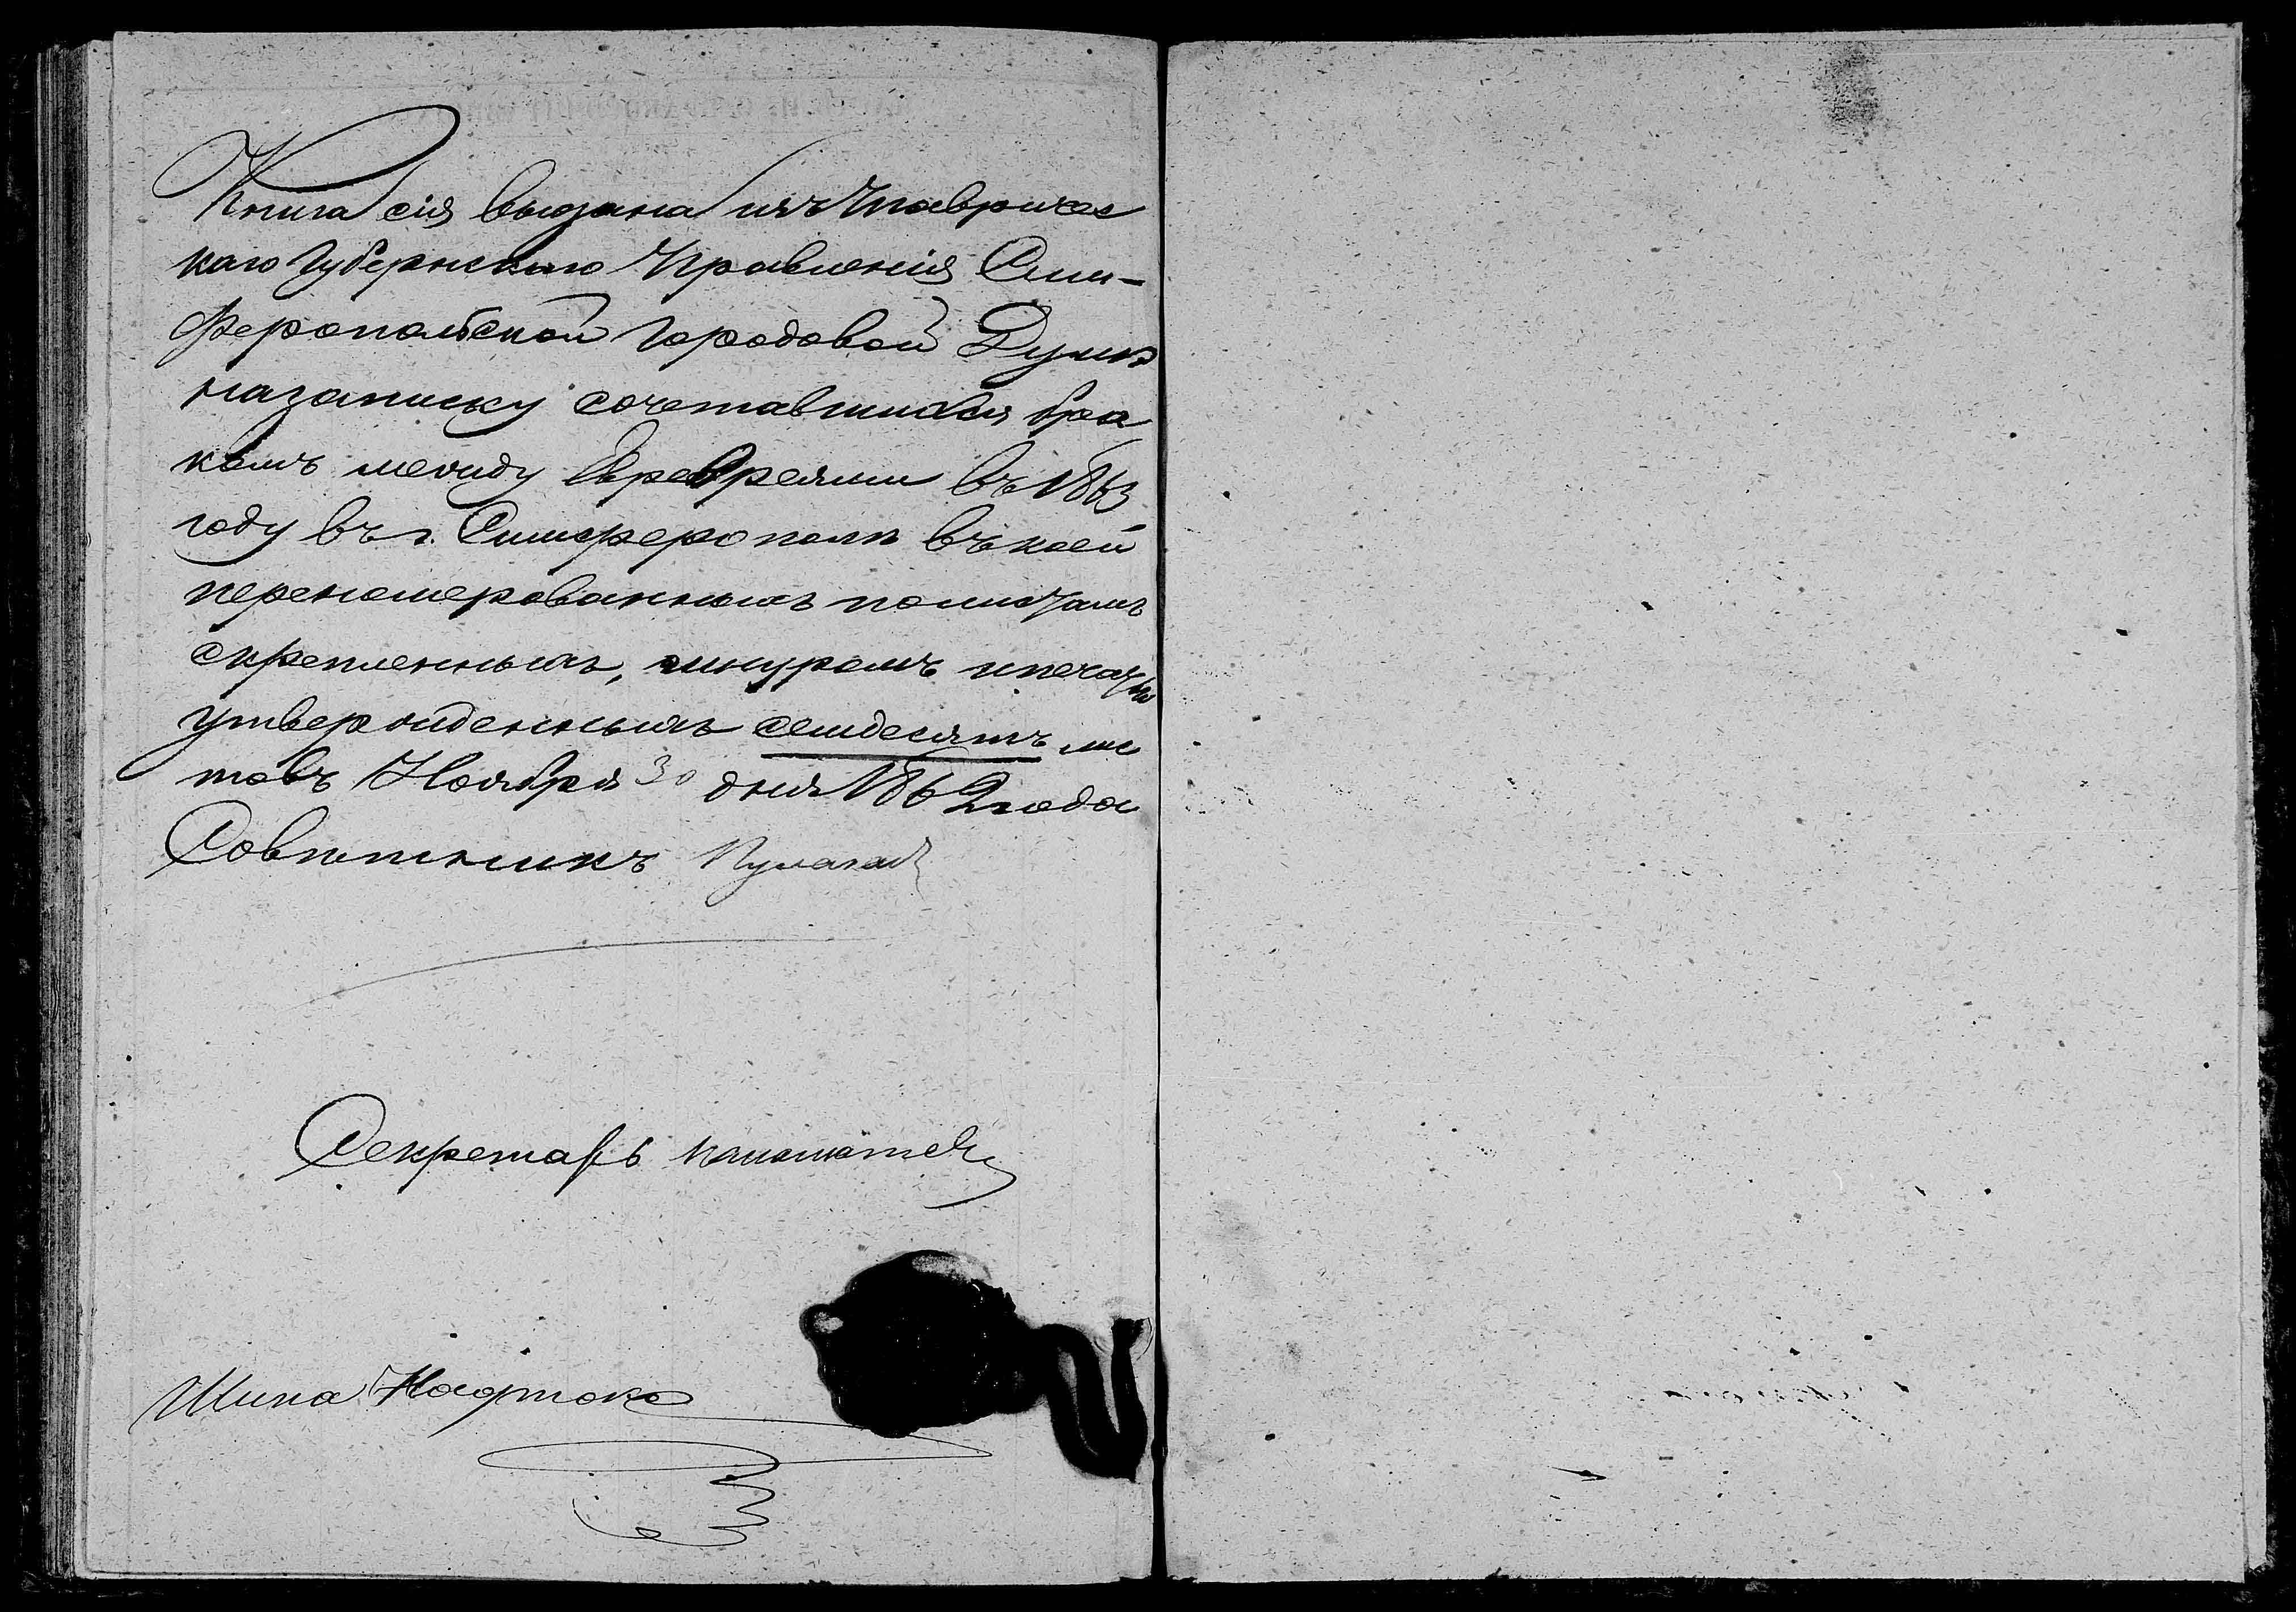 Книга сія выдана изъ Тавричес
каго Губернскаго Правленія Сим-
феропольской Городовой Думѣ
на записку сочетавшихся бра
комъ между Евреями въ 1863
году въ г. Симферополѣ въ коей
перенумерованныхъ по листамъ
скрепленныхъ, шнуромъ и печатью
утвержденныхъ семдесятъ лис
товъ Ноября 30 дня 1862 года
Совѣтникъ
Секретарь